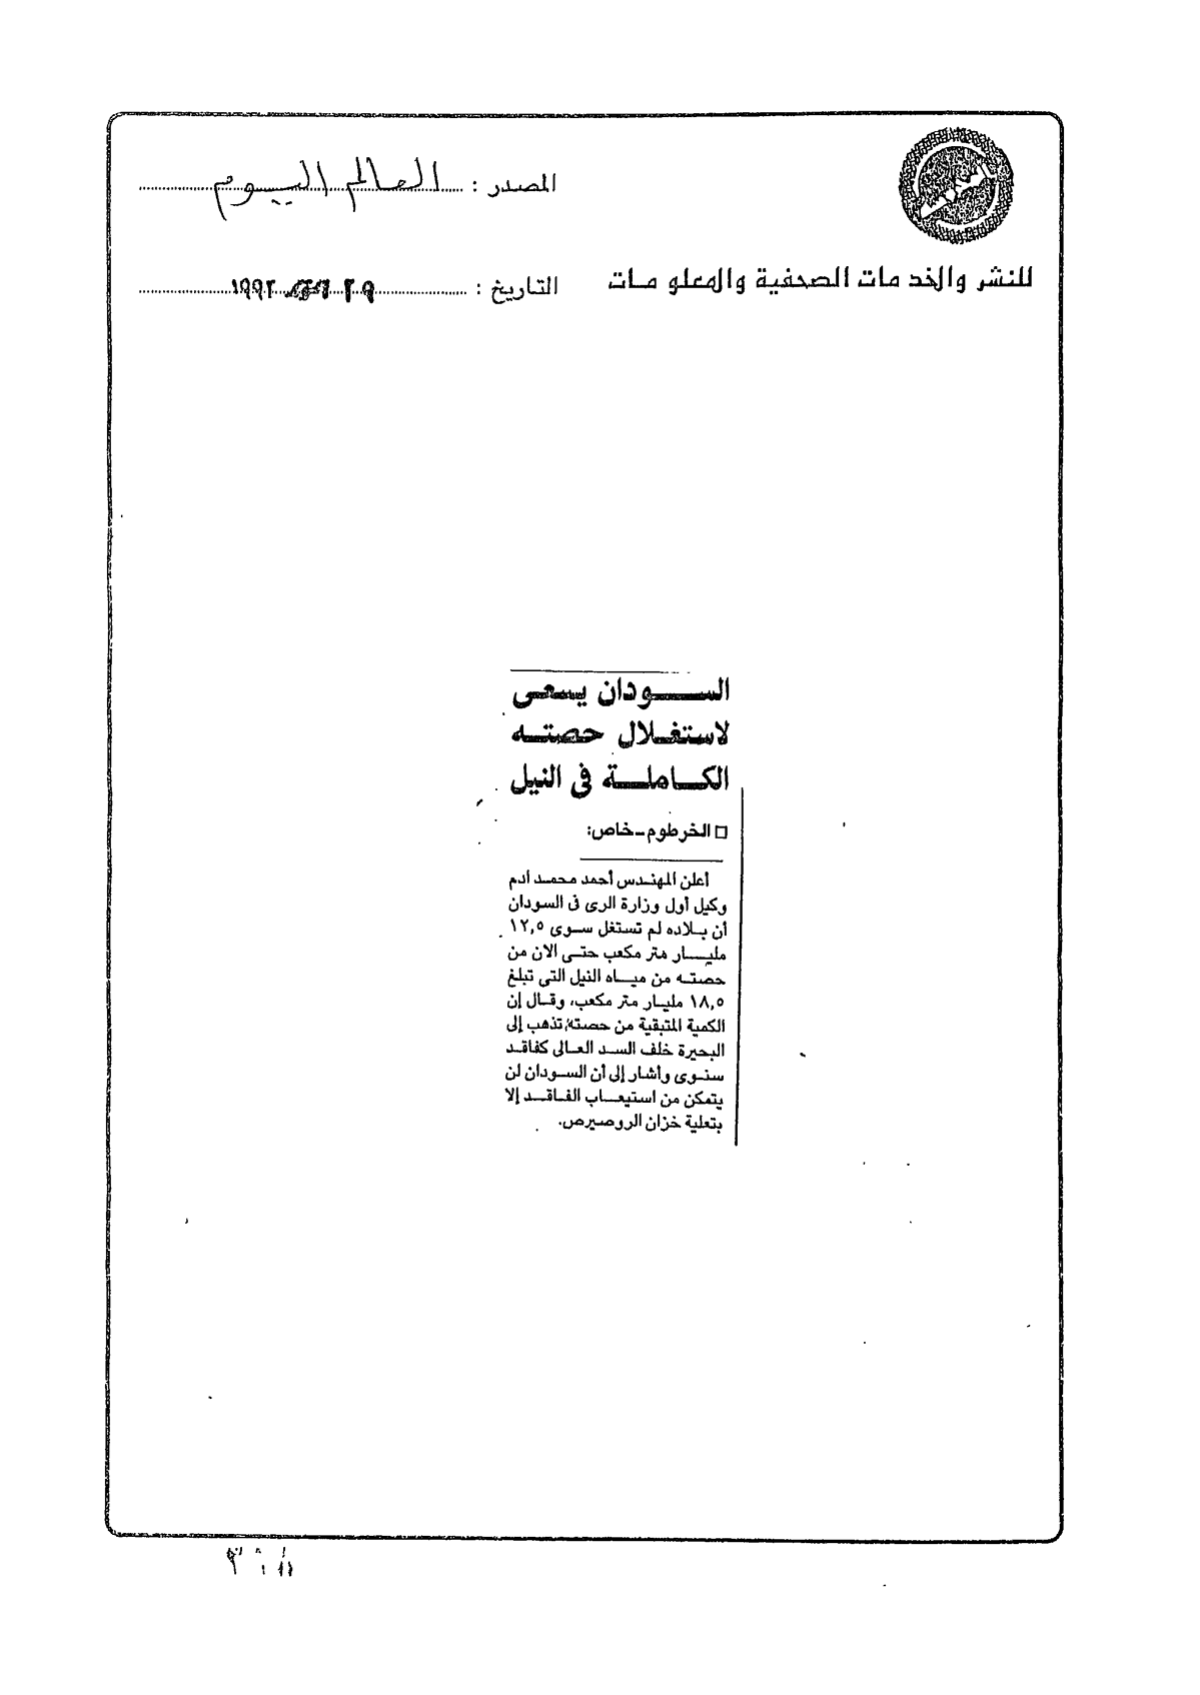 المصدر : العالم اليوم
للنشر والخدمات الصحفية والمعلومات
التاريخ : ٢٩ ١٩٩٢
الســـودان يسعى
لاستغـلال حصتـه
الكـاملـة فى النيل
□ الخرطوم-خاص:
أعلن المهندس أحمد محمد ادم
وكيل أول وزارة الرى فى السودان
أن بلاده لم تستغل سوى ١٢,٥
مليار متر مكعب حتى الان من
حصته من مياه النيل التى تبلغ
١٨,٥ مليار متر مكعب، وقال إن
الكمية المتبقية من حصته تذهب إلى
البحيرة خلف السد العالى كفاقد
سنوى وأشار إلى أن السودان لن
يتمكن من استيعاب الفاقد إلا
بتعلية خزان الروصيرص.